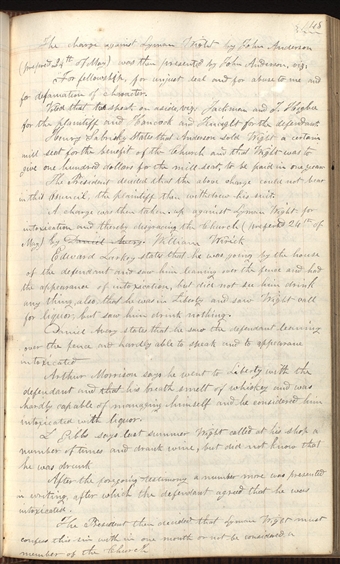 148
The charge against Lyman Wight by John Anderson
(preferd 24th of May) was then presented by John Anderson, viz;
For fellowship, for unjust seal and for abuse to me and
for defamation of character.
Voted that two speak on a side, viz; Jackman and S. Higbee
for the plaintiff and Hancock and Knight for the defendant
Henry Sabrisky states that Anderson sold Wight a certain
mill seat for the benefit of the Church and that Wight was to
give one hundred dollars for the mill seat, to be paid in one year
The President decided that the above charge could not bear
in this Council, the plaintiff then withdrew his suit.
A charge was then taken up against Lyman Wight for
intoxication, and thereby disgracing the Church (preferd 24th of
May) by Daniel Avery William Wirick
Edward Larkey states that he was going by the house
of the defendant and saw him leaning over the fence and had
the appearance of intoxication, but did not see him drink
any thing, also that he was in Liberty and saw Wight call
for liquor, but saw him drink nothing.
Daniel Avery states that he saw the defendant leaning
over the fence not hardly able to speak and to appearance
intoxicated
Arthur Morrison says he went to Liberty with the
defendant and that his breath smelt of whiskey and was
hardly capable of managing himself and he considered him
intoxicated with liquor.
L. Gibbs says last summer Wight called at his shop a
number of times and drank wine, but did not know that
he was drunk
After the foregoing testimony a number more was presented
in writing, after which the defendant agreed that he was
intoxicated.
The President then decided that Lyman Wight must
confess this sin with in one month or not be considered a
member of the Church